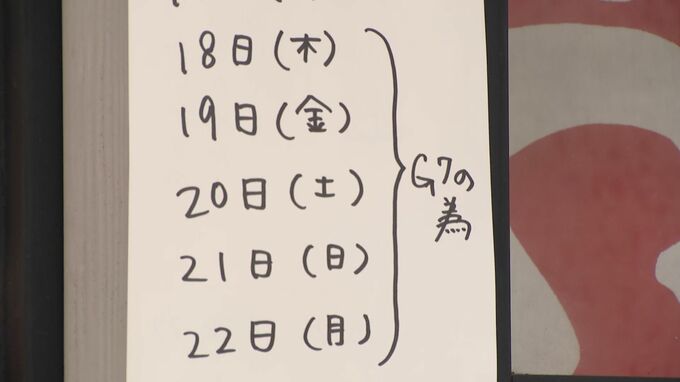 18日(木)
19日(金)
20日(土)
21日(日)
22日(月)
G7の
為